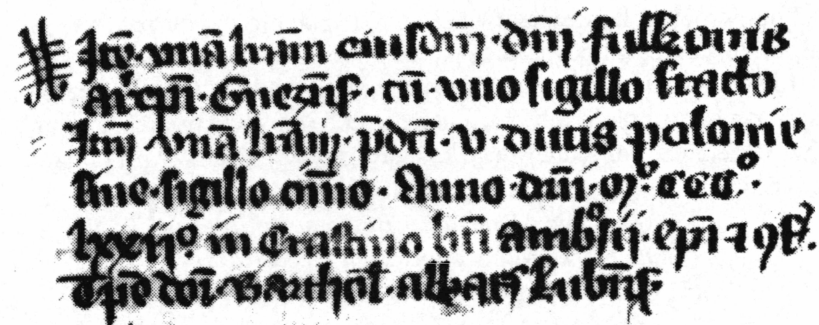 Itē. vnā lr̄am eiusdm̄. dn̄i fulkonis
Arēpi. Gnezn̄. cū. vno sigillo fracto
Itm̄ vnā lr̄am. p̄dci. v. ducis polonie
sine. sigillo oīno. Anno dn̄i. mº. CCCº.
lxxijº in Crastino bt̄i Ambºsij. ep̄i
dn̄i. Barthol̄. abbatis Lubn̄.